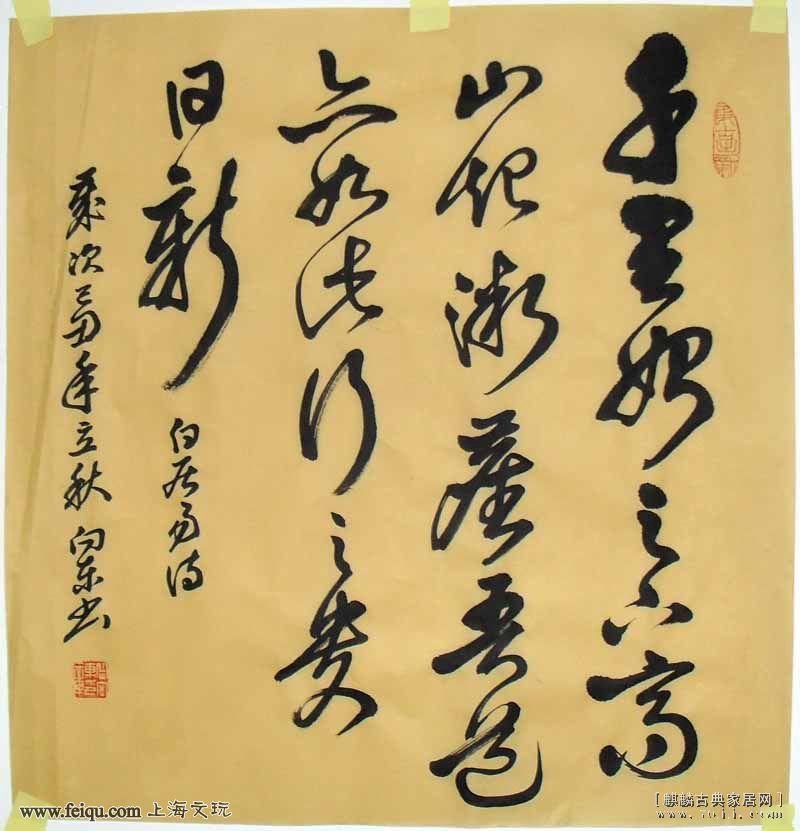 千里始足下高
山起微塵吾道
亦如此行之貴
日新 白居易诗
歲次己丑年立秋 向东书
www.feiqu.com 上海文玩
[麒麟古典家居网]